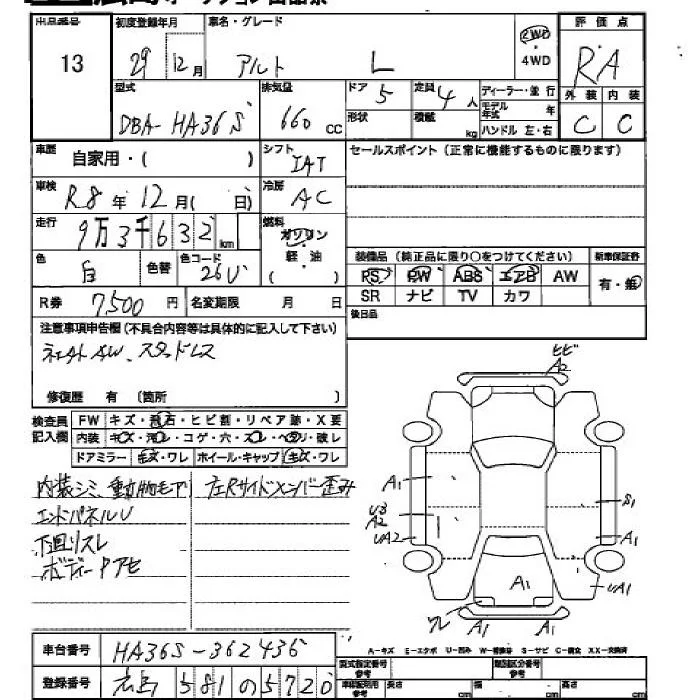 出品番号 初度登録年月 車名・グレード 評価点
13 29年12月 アルト L 2WD・4WD RA
型式 排気量 ドア 定員 ディーラー・並行 外装 内装
DBA-HA36S 660cc 5 4人 モデル年式 年 C C
形状 積載 kg ハンドル 左・右
車歴 自家用・( ) シフト IAT セールスポイント(正常に機能するものに限ります)
車検 R8年12月( 日) 冷房 AC
走行 9万3千632km 燃料 ガソリン
色 白 色替 色コード 26U 軽油 ( )
装備品(純正品に限り〇をつけてください) 新車保証書
PS PW ABS エアB AW 有・無
SR ナビ TV カワ
R券 7500円 名変期限 月 日 後日品
注意事項申告欄(不具合内容等は具体的に記入して下さい)
修復歴 有 (箇所 )
検査員記入欄 FW キズ・飛石・ヒビ割・リペア跡・X要
内装 キズ・汚れ・コゲ・穴・スレ・ヘタリ・破レ
ドアミラー キズ・ワレ ホイール・キャップ キズ・ワレ
内装シミ 左Rサイドメンバー歪み
エンドパネルU
下廻りスレ
ヒビ
A2
A1
U3
A2
UA2
S1
A1
UA1
A1
ワレ A1 A1
A-キズ E-エクボ U-凹み W-補修跡 S-サビ C-腐食 XX-交換済
車台番号 HA36S-362436 型式指定番号 参考 類別区分番号 参考
登録番号 広島 581 の 5720 参考 長さ cm 幅 cm 高さ cm